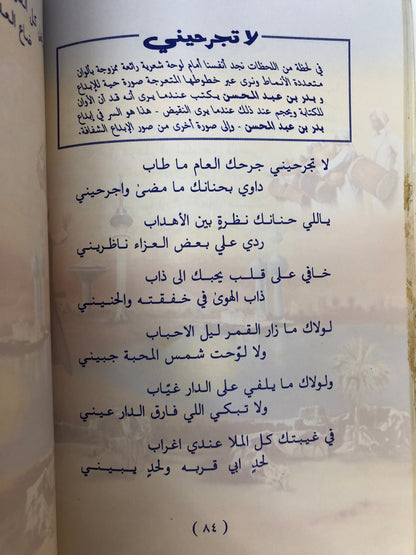 لا تجرحيني
في لحظة من اللحظات نجد أنفسنا أمام لوحة شعرية رائعة ممزوجة بألوان
متعددة الأنماط ونرى عبر خطوطها المتعرجة صورة حية للإبداع
و بدر بن عبد المحسن يكتب عندما يرى أنه قد آن الأوان
للكتابة ويحجم عند ذلك عندما يرى النقيض . هذا هو السر في إبداع
بدر بن عبد المحسن . وإلى صورة أخرى من صور الإبداع الشفافة.
لا تجرحيني جرحك العام ما طاب
داوي بحنانك ما مضى واجرحيني
ياللي حنانك نظرةٍ بين الأهداب
ردي علي بعض العزاء ناظريني
خافي على قلب يحبك الى ذاب
ذاب الهوى في خفقته والحنيني
لولاك ما زار القمر ليل الاحباب
ولا لوّحت شمس المحبة جبيني
ولولاك ما يلفي على الدار غيّاب
ولا تبكي اللي فارق الدار عيني
في غيبتك كل الملا عندي اغراب
لحدٍ ابي قربه ولحدٍ يبيني
( ٨٤ )